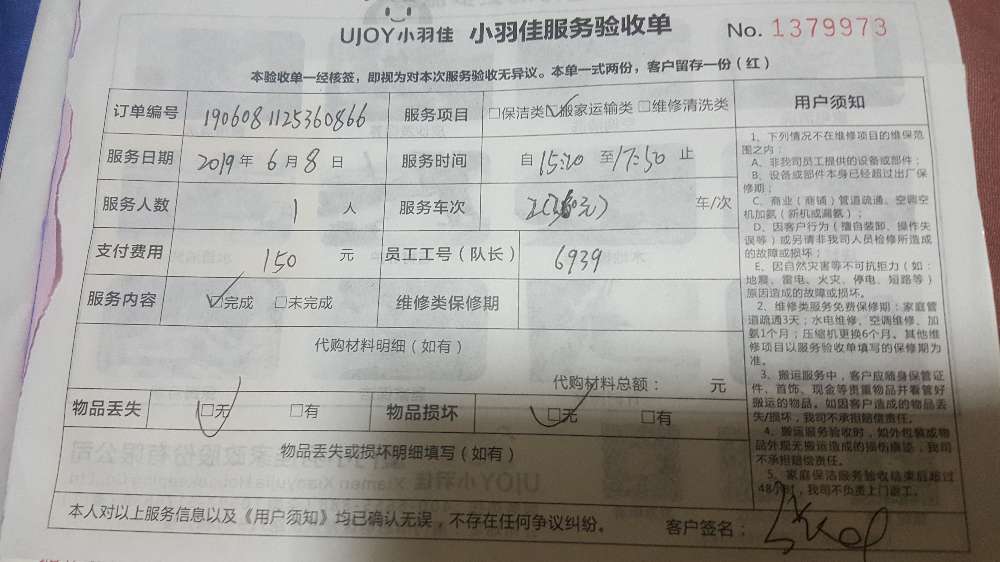 UJOY小羽佳 小羽佳服务验收单 No. 1379973
本验收单一经核签，即视为对本次服务验收无异议。本单一式两份，客户留存一份（红）
订单编号 1906081125360866 服务项目 □保洁类☑搬家运输类□维修清洗类
服务日期 2019年6月8日 服务时间 自15:20至17:50止
服务人数 1人 服务车次 车/次
支付费用 150元 员工工号（队长） 6939
服务内容 ☑完成 □未完成 维修类保修期
代购材料明细（如有）
代购材料总额： 元
物品丢失 ☑无 □有 物品损坏 ☑无 □有
物品丢失或损坏明细填写（如有）
本人对以上服务信息以及《用户须知》均已确认无误，不存在任何争议纠纷。 客户签名：
用户须知
1、下列情况不在维修项目的维保范
围之内：
A、非我司员工提供的设备或部件；
B、设备或部件本身已经超过出厂保
修期；
C、商业（商铺）管道疏通、空调空
机加氨（新机或漏氨）；
D、因客户行为（擅自装卸、操作失
误等）或另请非我司人员检修所造成
的故障或损坏；
E、因自然灾害等不可抗拒力（如：
地震、雷电、火灾、停电、短路等）
原因造成的故障或损坏。
2、维修类服务免费保修期：家庭管
道疏通3天；水电维修、空调维修、加
氨1个月；压缩机更换6个月。其他维
修项目以服务验收单填写的保修期为
准。
3、搬运服务中，客户应随身保管证
件、首饰、现金等贵重物品并看管好
搬运的物品。如因客户造成的物品丢
失/损坏，我司不承担赔偿责任。
4、搬运服务验收时，如外包装或物
品外观无搬运造成的损伤痕迹，我司
不承担赔偿责任。
5、家庭保洁服务验收结束后超过
48小时，我司不负责上门返工。